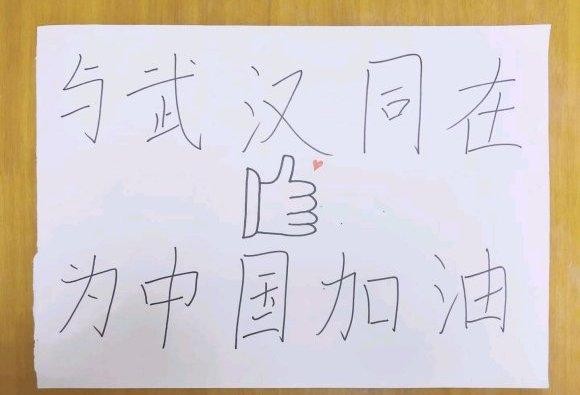 与武汉同在
为中国加油